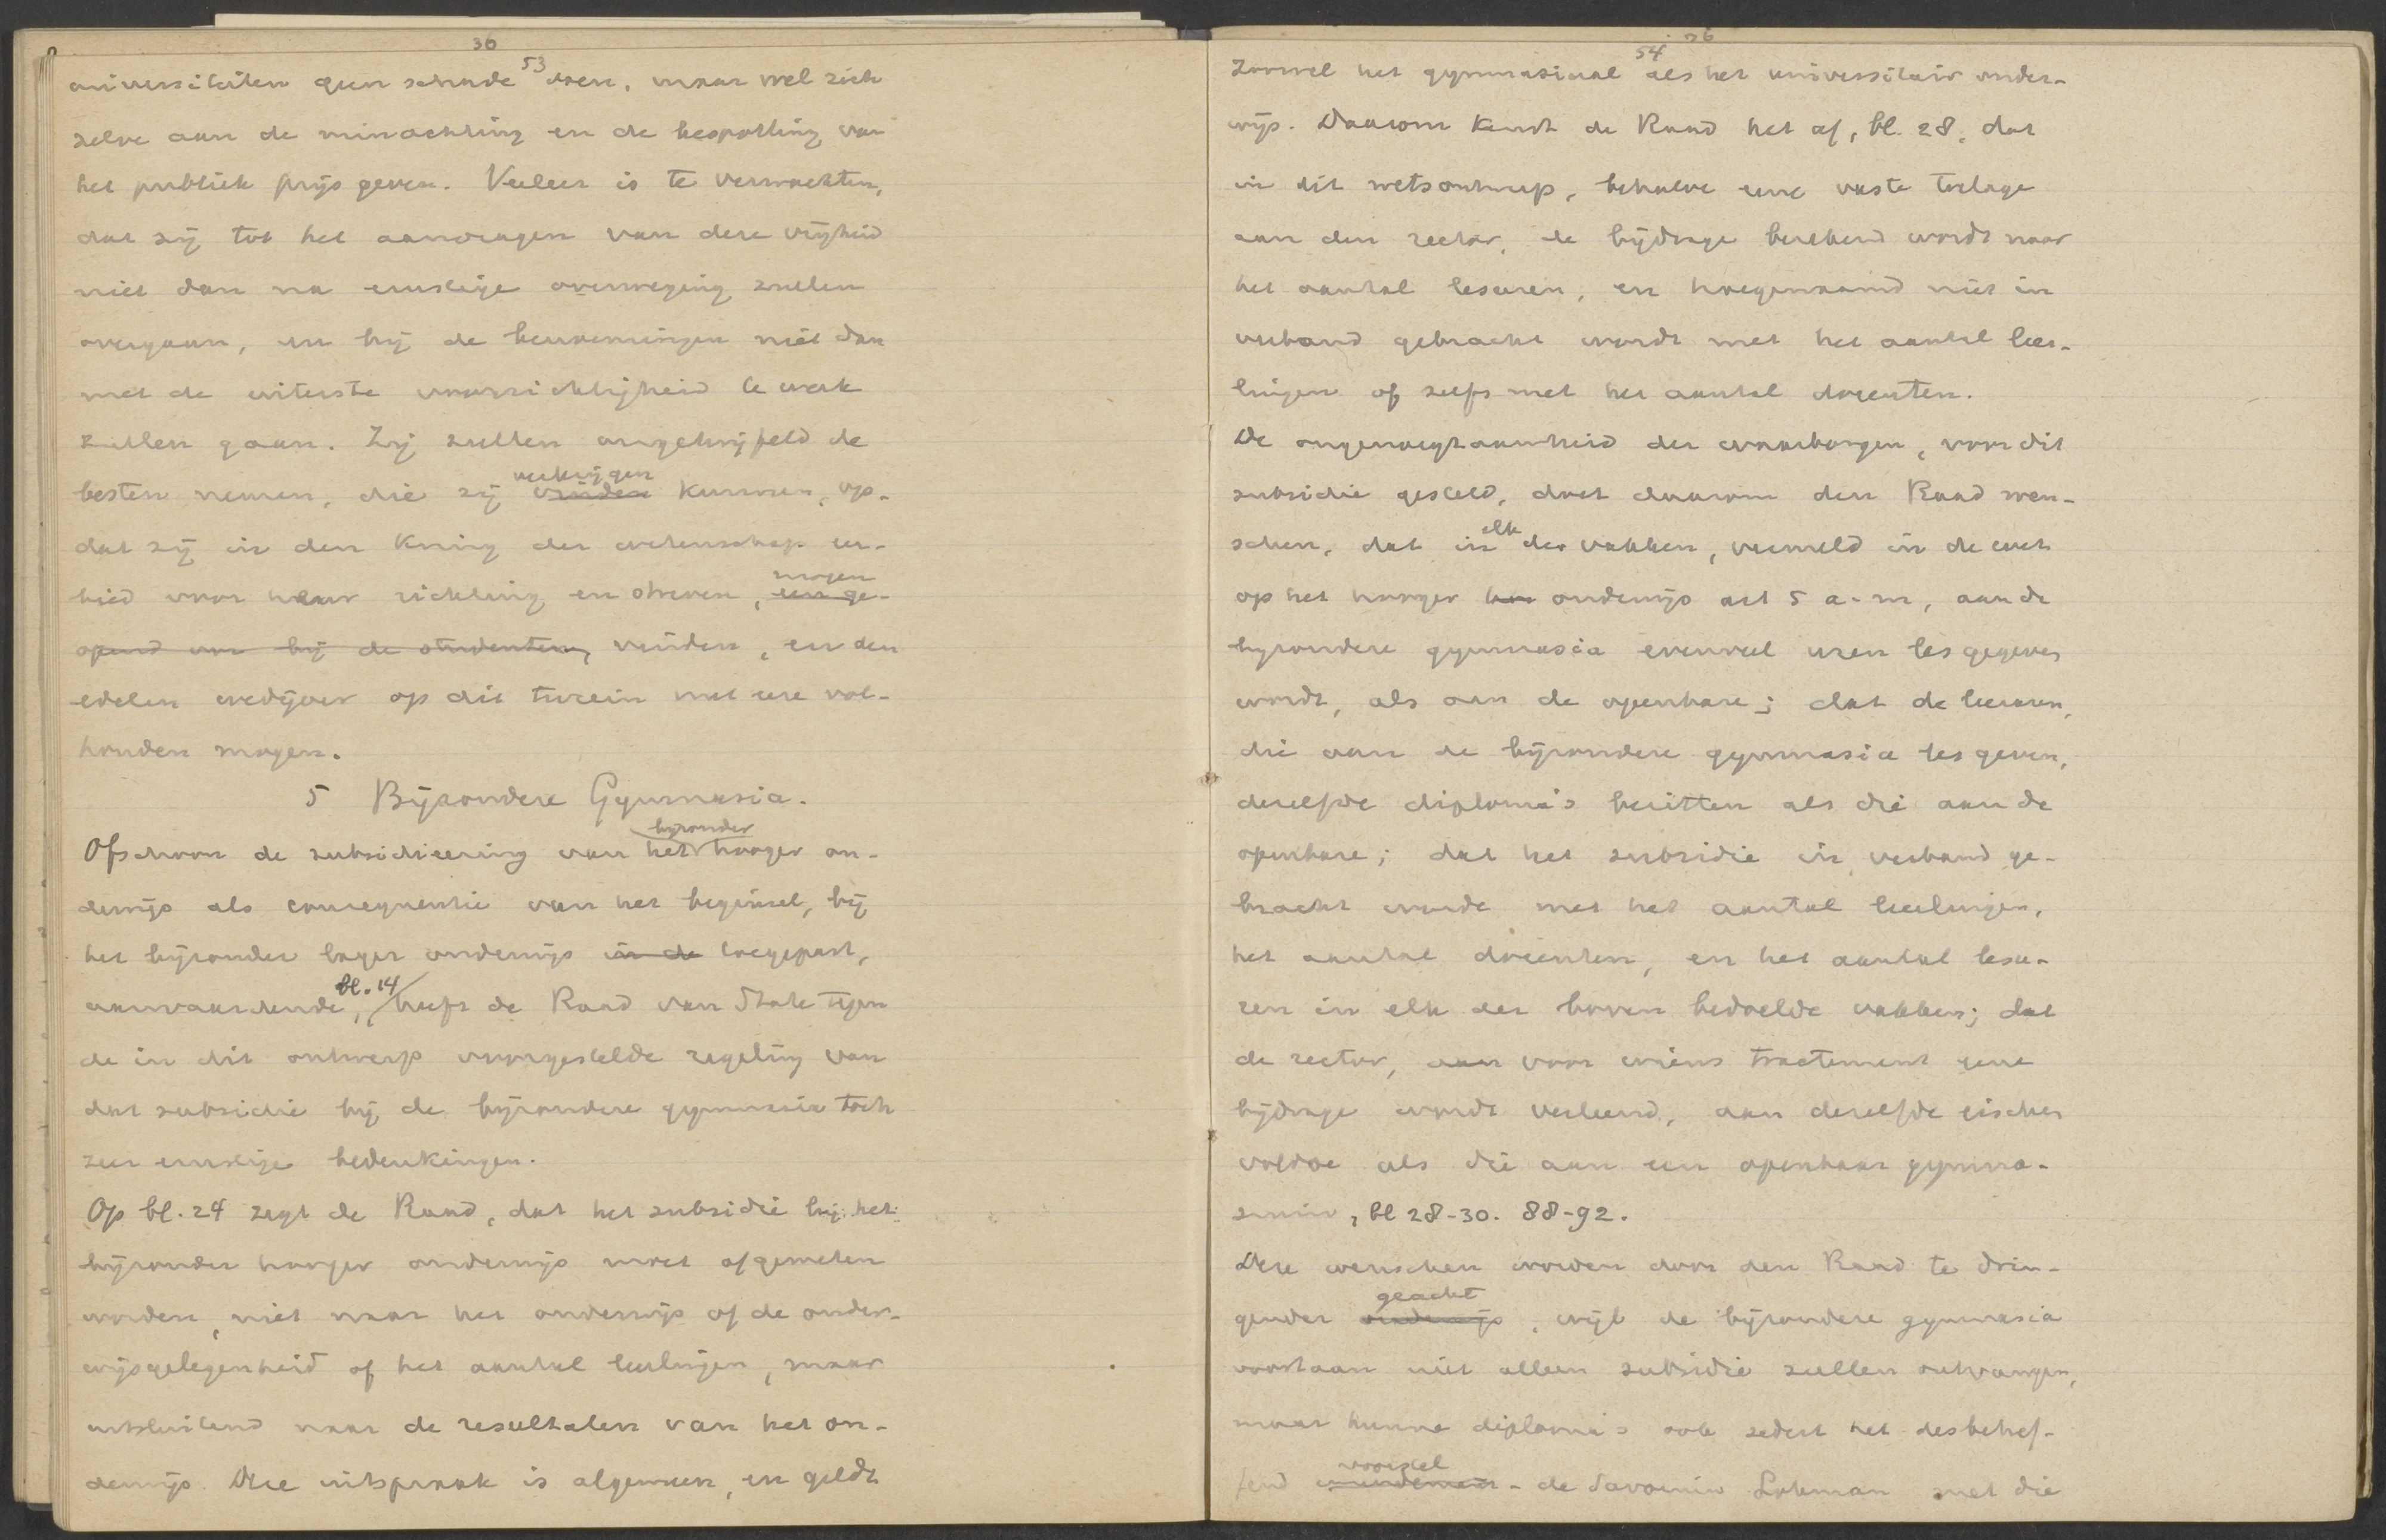 36
53
universiteiten geen schade doen, maar wel zich
zelve aan de minachting en de bespotting van
het publiek prijs geven. Veeleer is te verwachten,
dat zij tot het aanvragen van deze vrijheid
niet dan na ernstige overweging zullen
overgaan, en bij de benoemingen niet dan
met de uiterste voorzichtigheid te werk
zullen gaan. Zij zullen ongetwijfeld de
verkrijgen
besten nemen, die zij vinden kunnen, op-
dat zij in den kring der wetenschap eer-
mogen
bied voor haar richting en streven, een ge-
opend oor bij de studenten, vinden, en den
edelen wedijver op dit terrein met eere vol-
houden mogen.
5 Bijzondere Gymnasia.
bijzonder
Ofschoon de subsidieering van het hooger on-
derwijs als consequentie van het beginsel, bij
het bijzonder lager onderwijs in de toegepast,
bl. 14
aanvaardende, heeft de Raad van State tegen
de in dit ontwerp voorgestelde regeling van
dat subsidie bij de bijzondere gymnasia toch
zeer ernstige bedenkingen.
Op bl. 24 zegt de Raad, dat het subsidie bij het
bijzonder hooger onderwijs moet afgemeten
worden, niet naar het onderwijs of de onder-
wijsgelegenheid of het aantal leerlingen, maar
uitsluitend naar de resultaten van het on-
derwijs. Deze uitspraak is algemeen, en geldt
36
54
zoowel het gymnasiaal als het universitair onder-
wijs. Daarom keurt de Raad het af, bl. 28, dat
in dit wetsontwerp, behalve eene vaste toelage
aan den rector, de bijdrage berekend wordt naar
het aantal lesuren, en hoegenaamd niet in
verband gebracht wordt met het aantal leer-
lingen of zelfs met het aantal docenten.
De ongenoegzaamheid der waarborgen, voor dit
subsidie gesteld, doet daarom den Raad wen-
elk
schen, dat in der vakken, vermeld in de wet
op het hooger on onderwijs art 5 a-m, aan de
bijzondere gymnasia evenveel uren les gegeven
wordt, als aan de openbare; dat de leeraren,
die aan de bijzondere gymnasia les geven,
dezelfde diploma's bezitten als die aan de
openbare; dat het subsidie in verband ge-
bracht worde met het aantal leerlingen,
het aantal docenten, en het aantal lesu-
ren in elk der boven bedoelde vakken; dat
de rector, aan voor wiens tractement eene
bijdrage wordt verleend, aan dezelfde eischen
voldoe als die aan een openbaar gymna-
sium, bl 28-30. 88-92.
Deze wenschen worden door den Raad te drin-
geacht
gender onderwijs, wijl de bijzondere gymnasia
voortaan niet alleen subsidie zullen ontvangen,
maar hunne diploma's ook sedert het desbetref-
voorstel
fend amendement - de Savornin Lohman met die